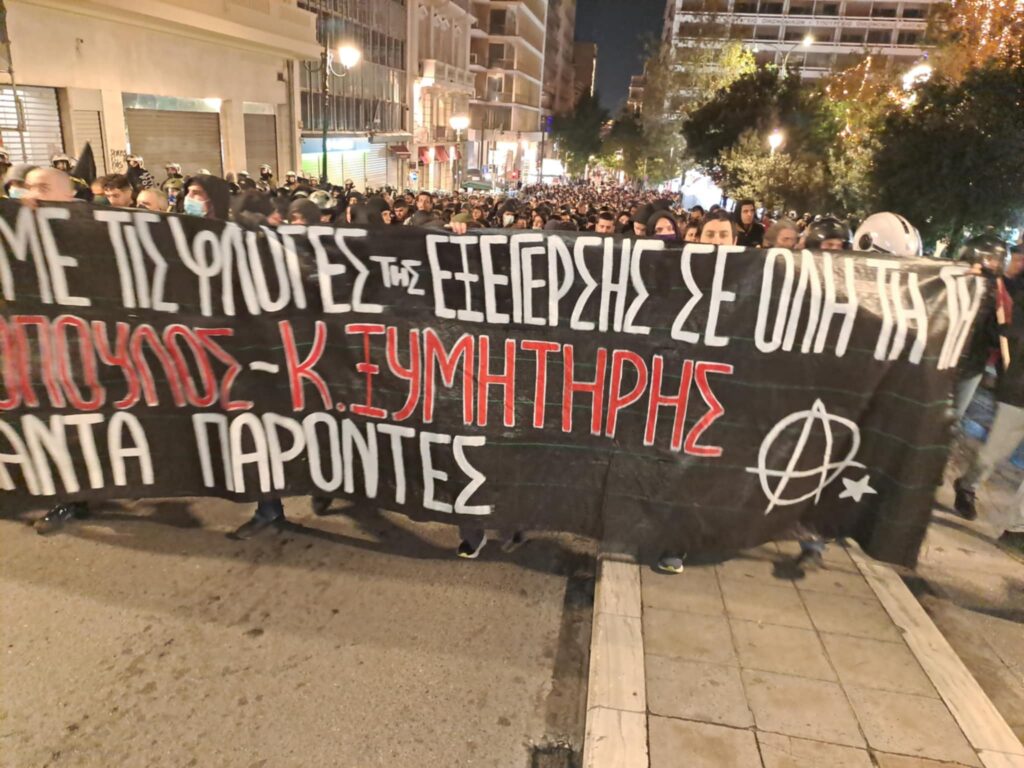 ΜΕ ΤΙΣ ΦΛΟΓΕΣ ΤΗΣ ΕΞΕΓΕΡΣΗΣ ΣΕ ΟΛΗ ΤΗ ΓΗ
ΟΠΟΥΛΟΣ ~ Κ. ΞΥΜΗΤΗΡΗΣ
ΑΝΤΑ ΠΑΡΟΝΤΕΣ